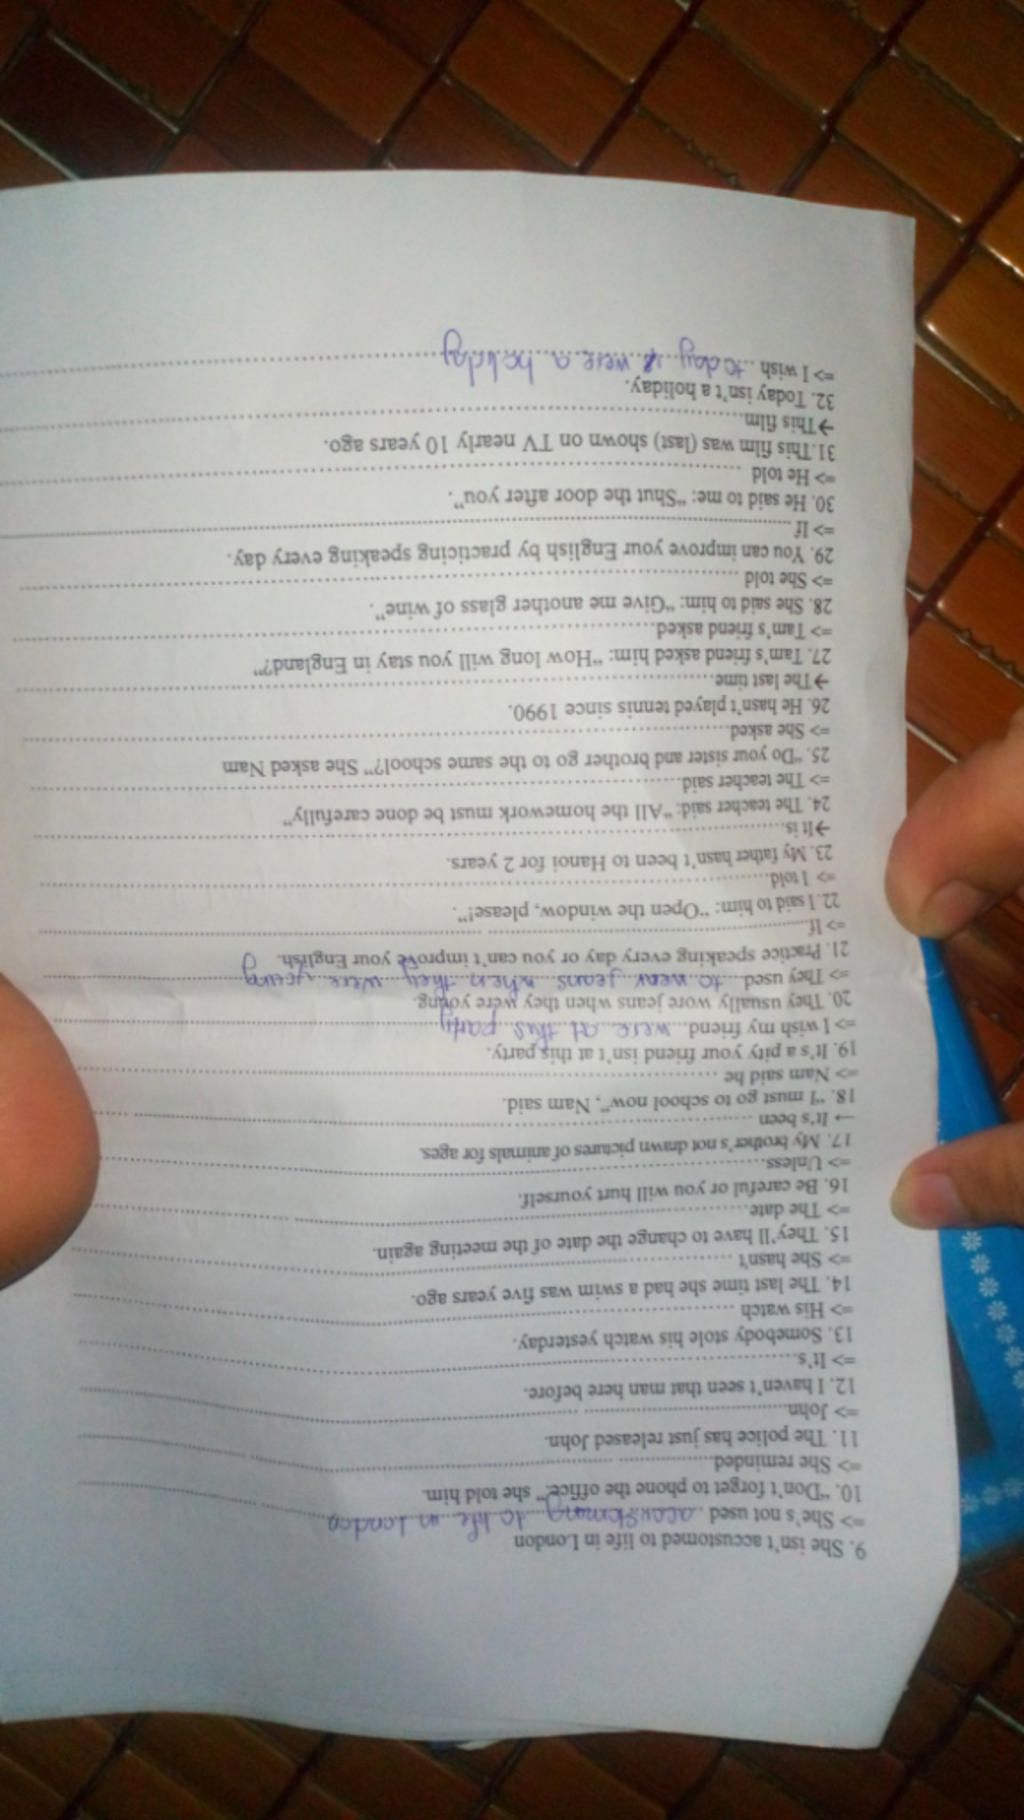 9. She isn't accustomed to life in London
=> She's not used accustoming to life in London
10. "Don't forget to phone the office," she told him.
=> She reminded
11. The police has just released John.
=> John
12. I haven't seen that man here before.
=> It's
13. Somebody stole his watch yesterday.
=> His watch
14. The last time she had a swim was five years ago.
=> She hasn't
15. They'll have to change the date of the meeting again.
=> The date
16. Be careful or you will hurt yourself.
=> Unless
17. My brother's not drawn pictures of animals for ages.
→ It's been
18. "I must go to school now", Nam said.
=> Nam said he
19. It's a pity your friend isn't at this party.
=> I wish my friend were at this party
20. They usually wore jeans when they were young.
=> They used to wear jeans when they were young
21. Practice speaking every day or you can't improve your English.
=> If
22. I said to him: "Open the window, please!".
=> I told
23. My father hasn't been to Hanoi for 2 years.
→ It is
24. The teacher said: "All the homework must be done carefully"
=> The teacher said
25. "Do your sister and brother go to the same school?" She asked Nam
=> She asked
26. He hasn't played tennis since 1990.
→ The last time
27. Tam's friend asked him: "How long will you stay in England?"
=> Tam's friend asked
28. She said to him: "Give me another glass of wine".
=> She told
29. You can improve your English by practicing speaking every day.
=> If
30. He said to me: "Shut the door after you".
=> He told
31.This film was (last) shown on TV nearly 10 years ago.
→ This film
32. Today isn't a holiday.
=> I wish today were a holiday